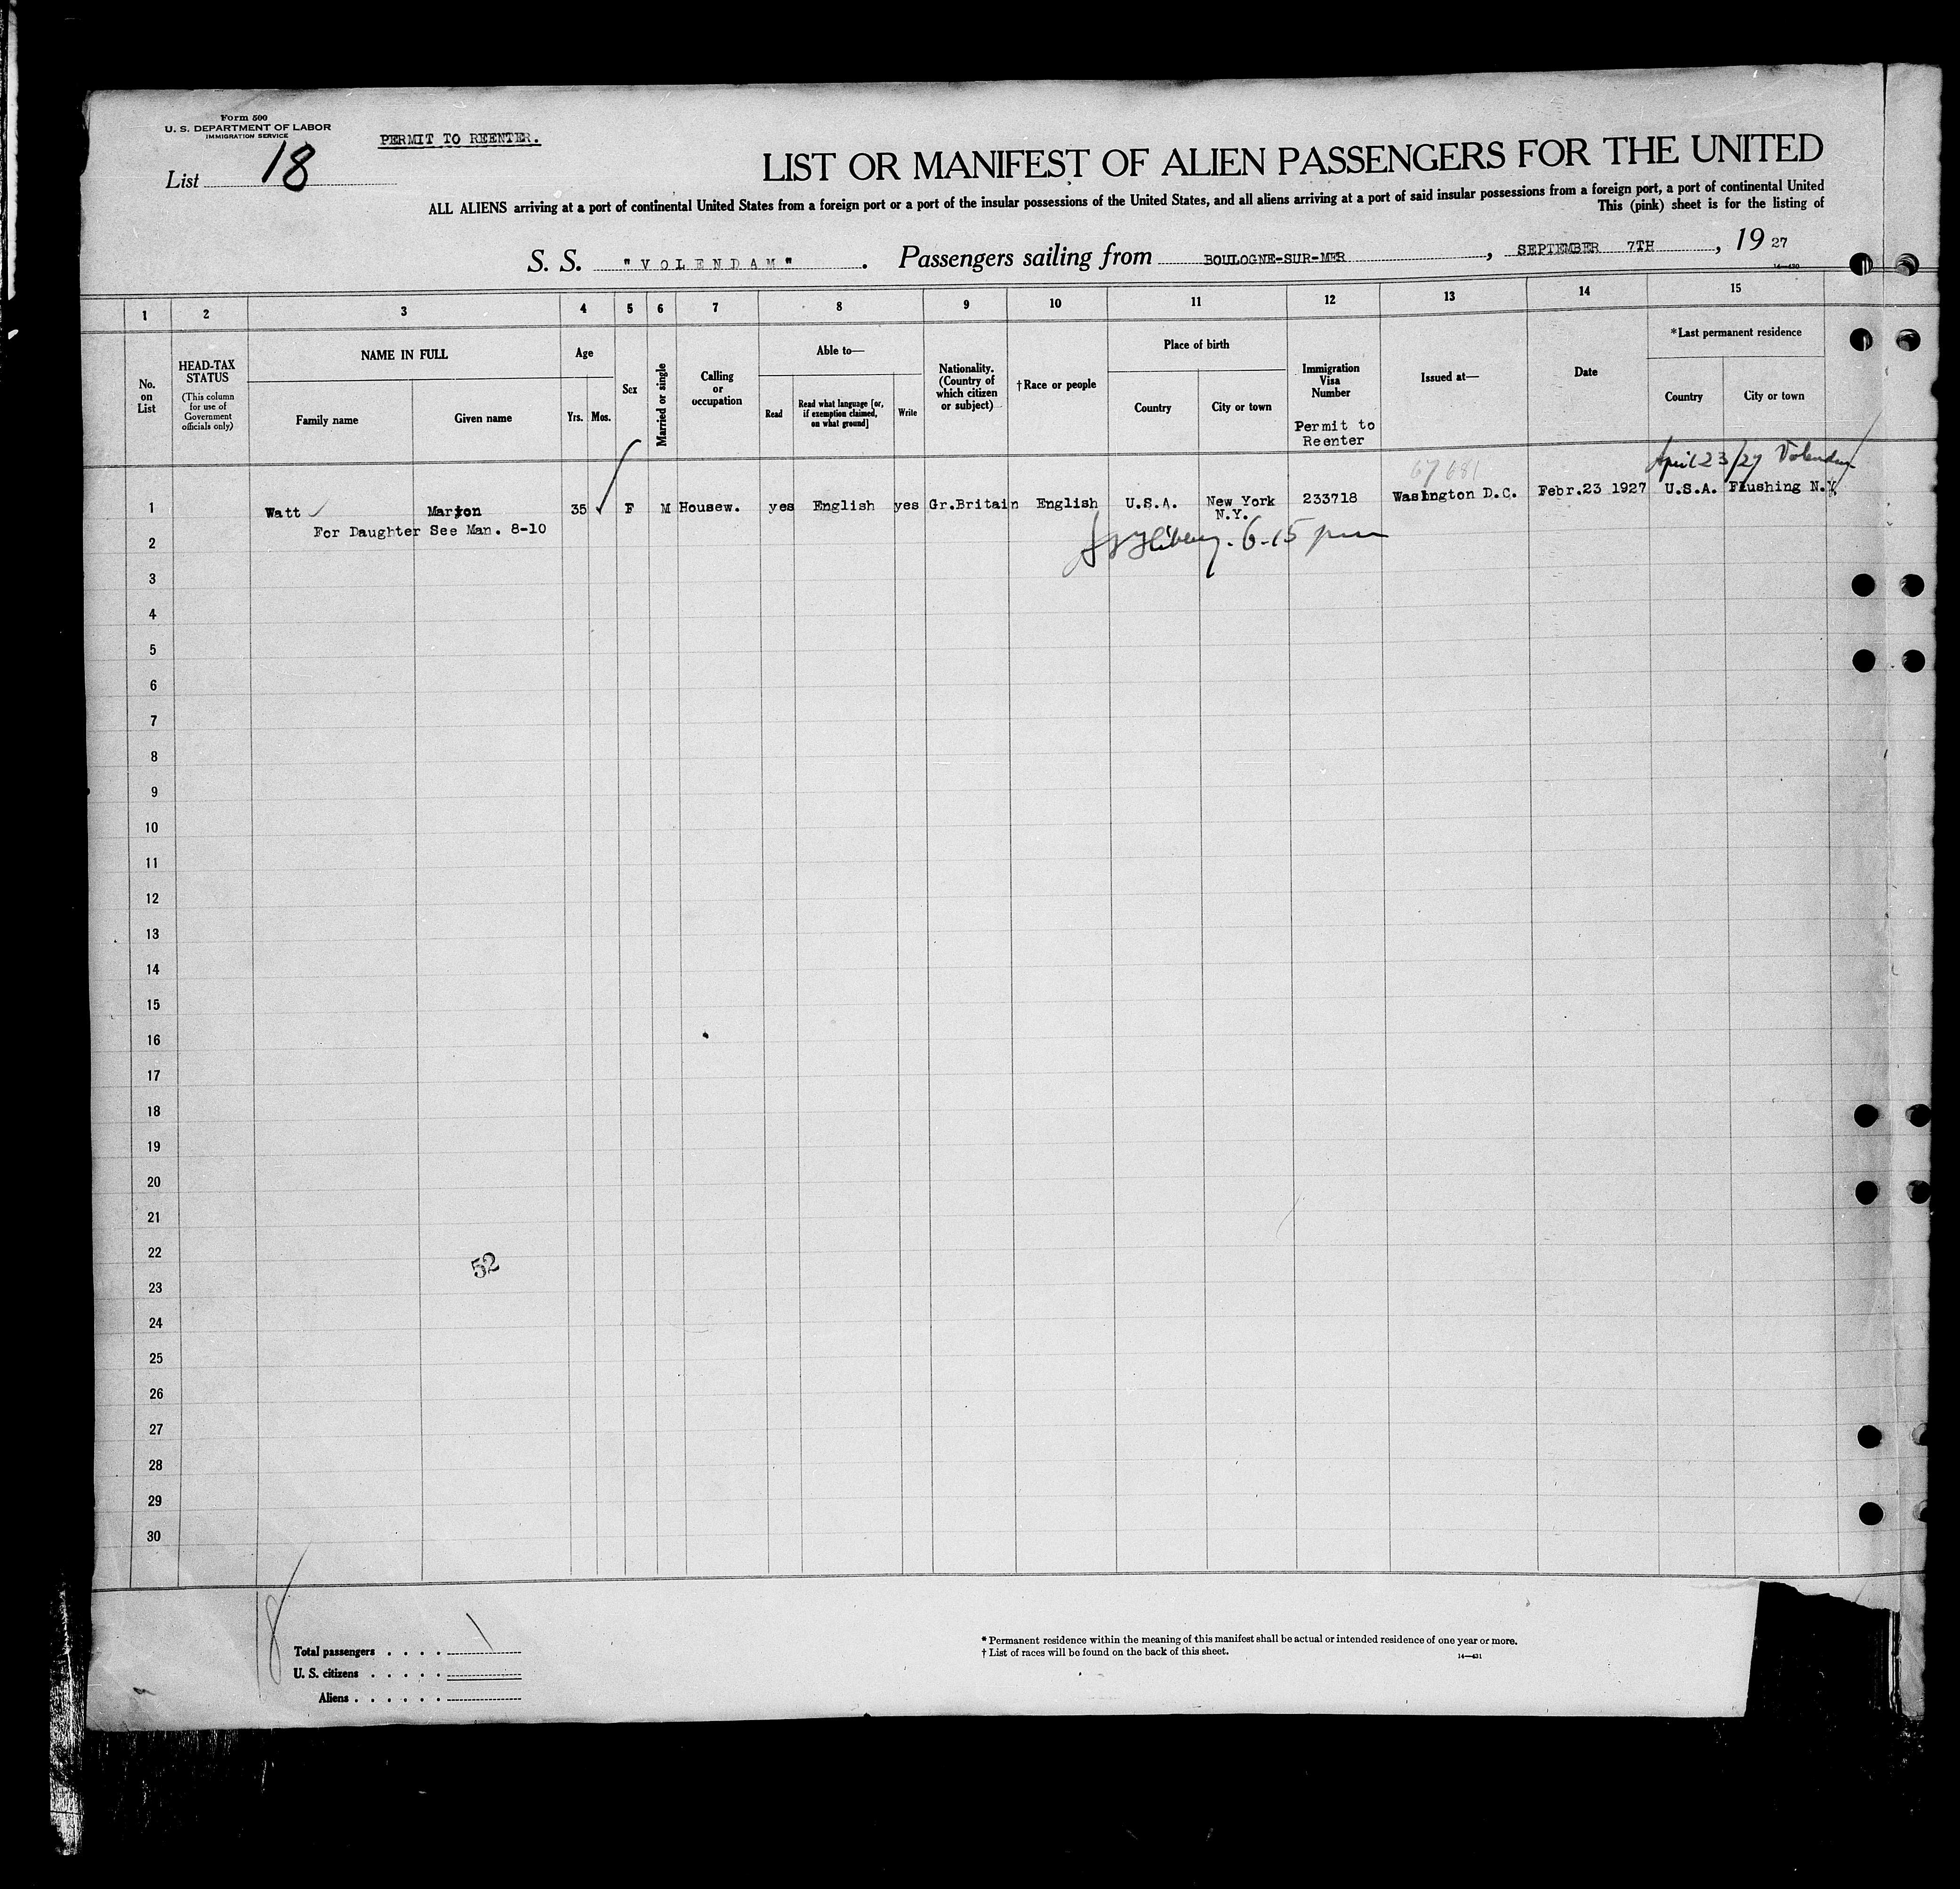 Form 500
U. S. DEPARTMENT OF LABOR
IMMIGRATION SERVICE
PERMIT TO REENTER.
List 18
LIST OR MANIFEST OF ALIEN PASSENGERS FOR THE UNITED
ALL ALIENS arriving at a port of continental United States from a foreign port or a port of the insular possessions of the United States, and all aliens arriving at a port of said insular possessions from a foreign port, a port of continental United
This (pink) sheet is for the listing of
S. S. "VOLENDAM". Passengers sailing from BOULOGNE-SUR-MER, SEPTEMBER 7TH, 19 27
14-430
1 2 3 4 5 6 7 8 9 10 11 12 13 14 15
No. on List
HEAD-TAX STATUS
(This column for use of Government officials only)
NAME IN FULL
Family name
Given name
Age
Yrs. Mos.
Sex
Married or single
Calling or occupation
Able to—
Read
Read what language [or, if exemption claimed, on what ground]
Write
Nationality. (Country of which citizen or subject)
†Race or people
Place of birth
Country
City or town
Immigration Visa Number
Permit to Reenter
Issued at—
Date
*Last permanent residence
Country
City or town
April 23/27 Volendam
67681
1 Watt Marion 35 F M Housew. yes English yes Gr.Britain English U.S.A. New York N.Y. 233718 Washington D.C. Febr.23 1927 U.S.A. Flushing N.Y.
For Daughter See Man. 8-10
6-15 pm
2
3
4
5
6
7
8
9
10
11
12
13
14
15
16
17
18
19
20
21
22
52
23
24
25
26
27
28
29
30
Total passengers . . . . 1
U. S. citizens . . . . .
Aliens . . . . . .
* Permanent residence within the meaning of this manifest shall be actual or intended residence of one year or more.
† List of races will be found on the back of this sheet.
14-431